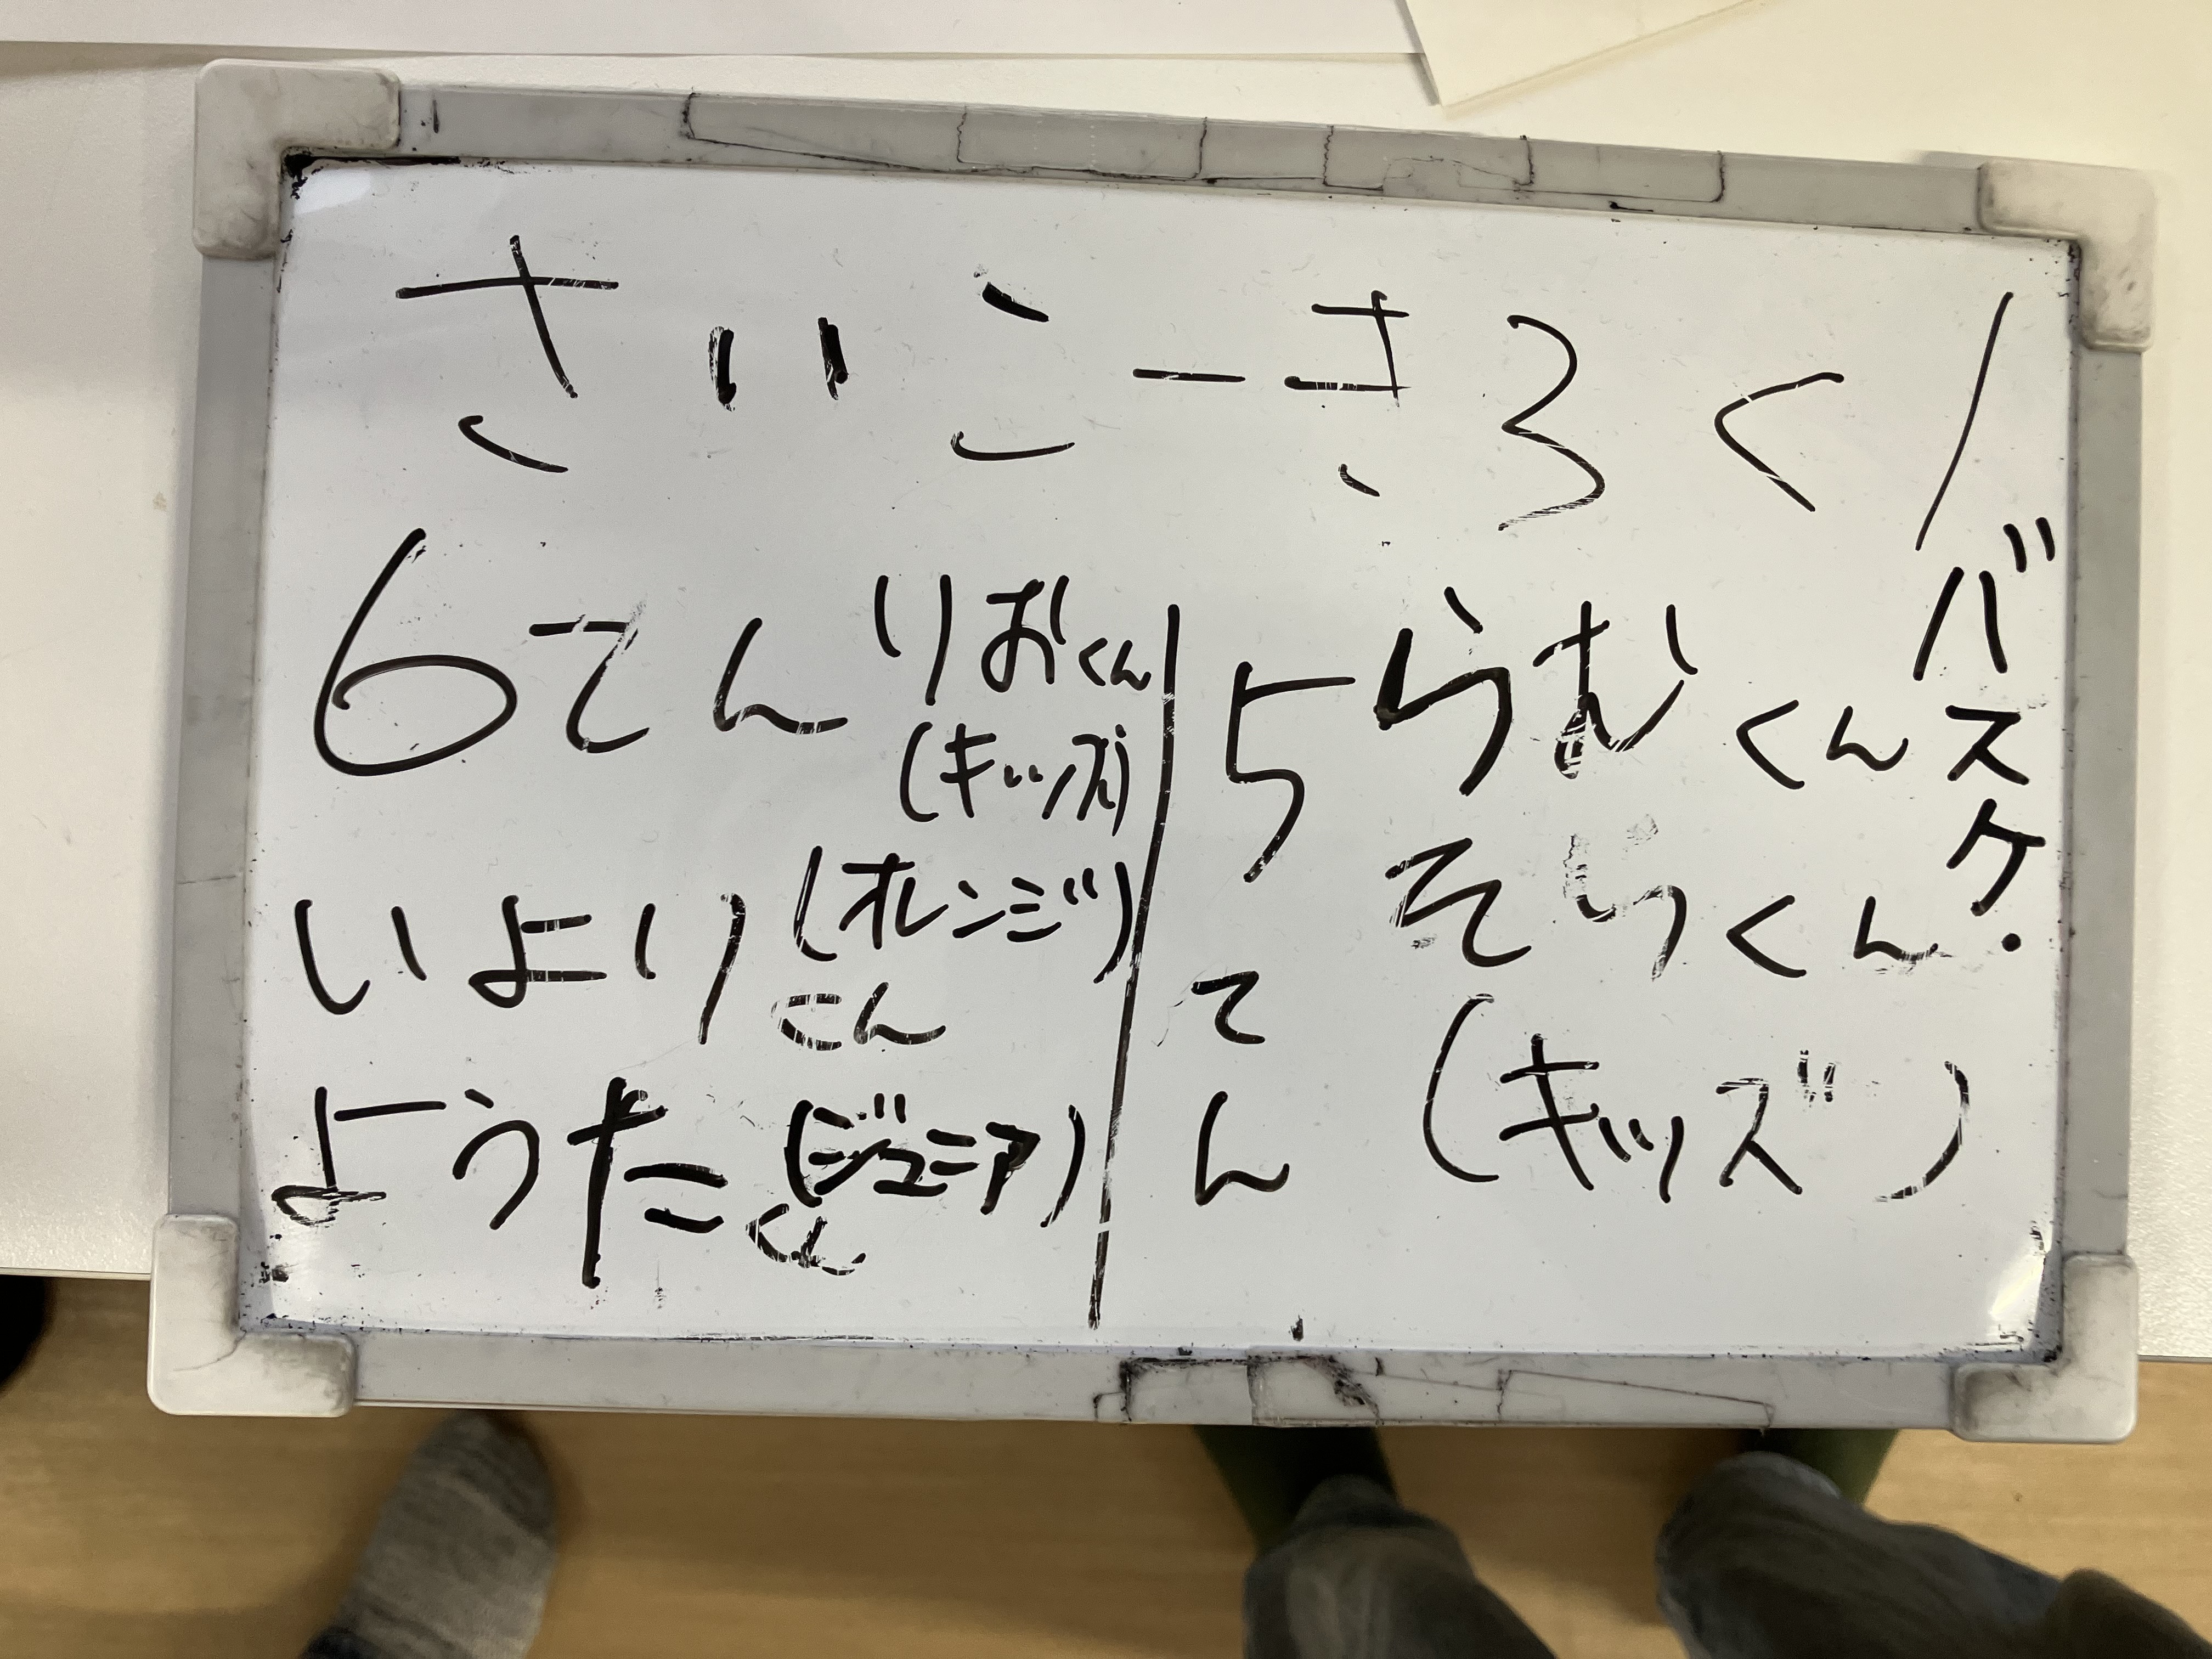 さいこーきろく/
バスケ・
6てん りおくん
(キッズ)
いより(オレンジ)
くん
ようた(ジュニア)
くん
5てん
らむくん
そらくん
(キッズ)